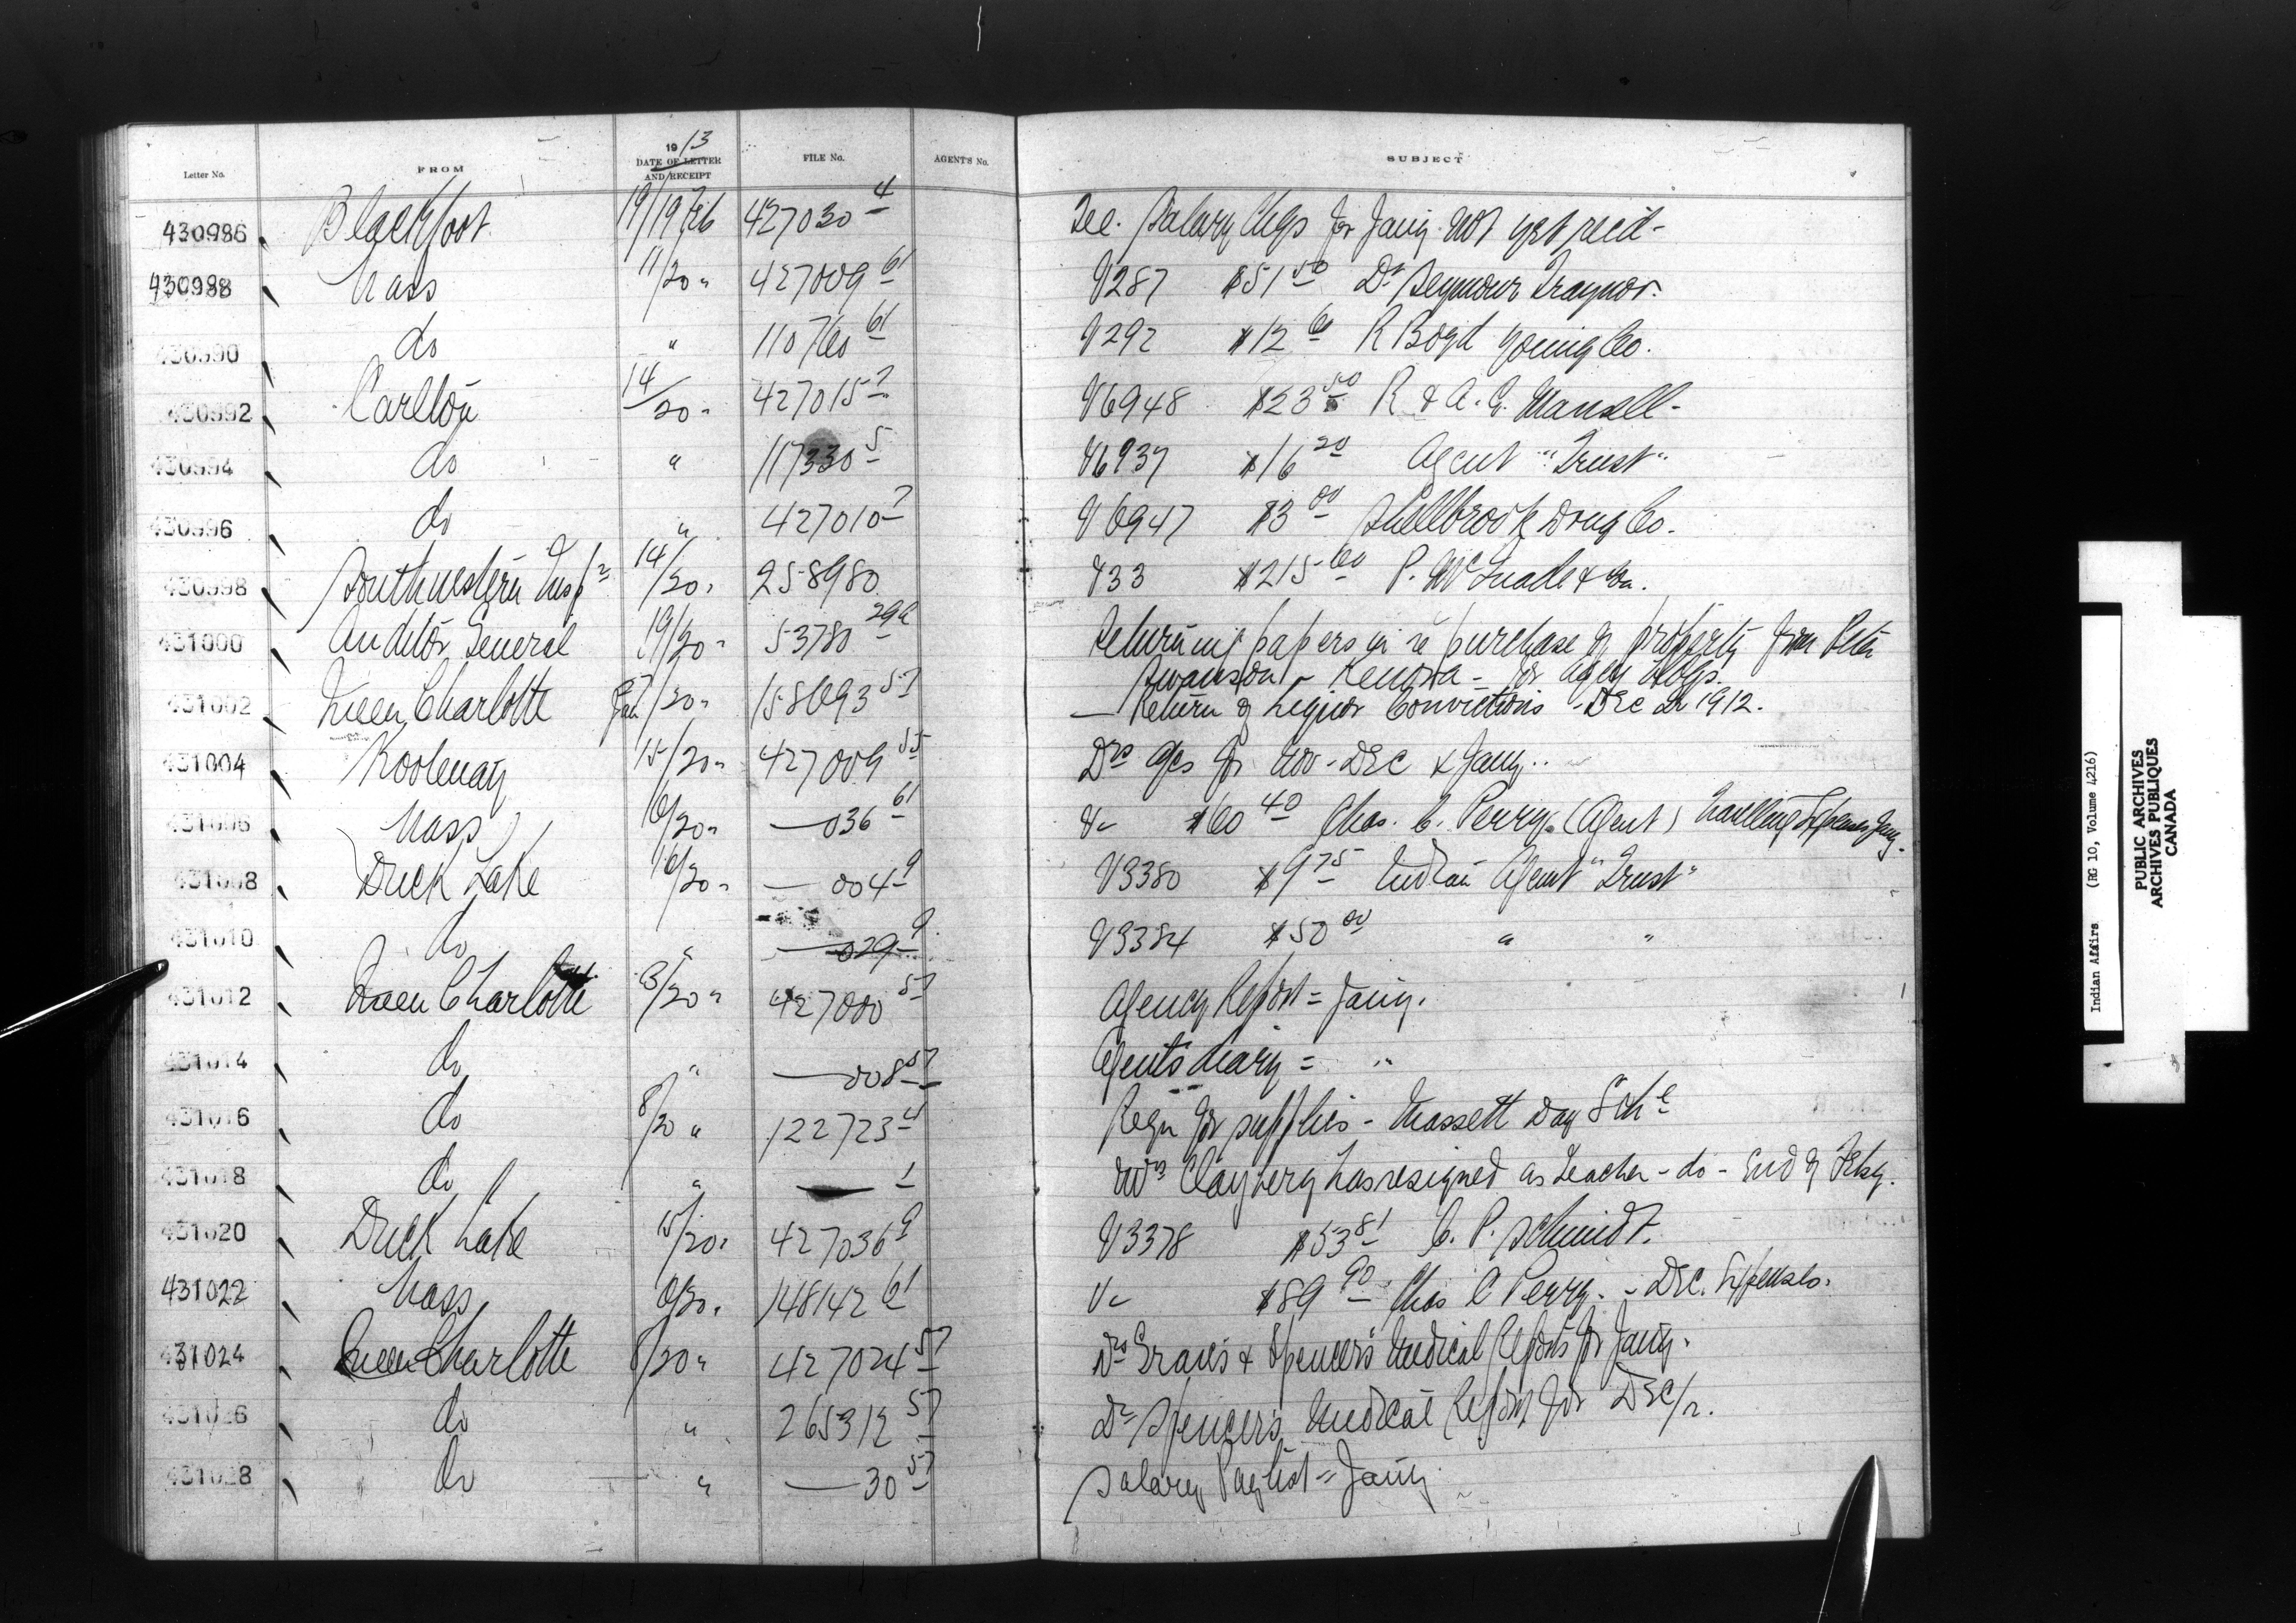 Letter No. FROM 1913 DATE OF LETTER AND RECEIPT FILE No. AGENT'S No. SUBJECT
430986 Blackfoot 19/19 Feb 427030 4 Tel. Salary Chqs for Jany not yet recd -
430988 Nass 11/20 " 427009 61 V287 $51 50 Dr Seymour Traynor.
430990 do " 110760 61 V292 $12 60 R Boyd Young Co.
430992 Carlton 14/20 " 427015 7 V6948 $23 50 R & A. G. Mansell -
430994 do " 117330 5 V6937 $16 20 Agent "Trust"
430996 do " 427010 7 V6947 $3 00 Shellbrook Drug Co.
430998 Southwestern Insp 14/20 " 258980 V33 $215 60 P. McQuade & Son.
431000 Auditor General 19/20 " 53780 Returning papers in re purchase of property from Peter
Swanson - Kenora - for Agcy Bldgs.
431002 Queen Charlotte /20 " 158693 57 Return of Liquor Convictions - Dec Qr 1912.
431004 Kootenay 15/20 " 427009 55 Drs a/cs for Nov - Dec & Jany.
431006 Nass 10/20 " — 036 61 V- $60 40 Chas. C. Perry (Agent) Travelling Expenses Jany.
431008 Duck Lake 16/20 " — 004 9 V3380 $9 75 Indian Agent "Trust"
431010 do " — 029 9 V3384 $50 00 " "
431012 Queen Charlotte 3/20 " 427000 57 Agency Report = Jany.
431014 do " — 008 57 Agent's diary = "
431016 do 8/20 " 122723 4 Reqn for supplies - Massett Day Schl
431018 do " — 1 Mrs Clayberg has resigned as Teacher - do - End of Feby.
431020 Duck Lake 15/20 " 427036 9 V3378 $53 81 C. P. Schmidt.
431022 Nass 6/20 " 148142 61 V- $89 90 Chas C Perry. - Dec. Expenses.
431024 Queen Charlotte 8/20 " 427024 57 Drs & Spencer's Medical Reports for Jany.
431026 do " 265312 57 Dr Spencer's Medical Report for Dec/12.
431028 do " — 30 57 Salary Paylist = Jany
Indian Affairs (RG 10, Volume 4216)
PUBLIC ARCHIVES
ARCHIVES PUBLIQUES
CANADA